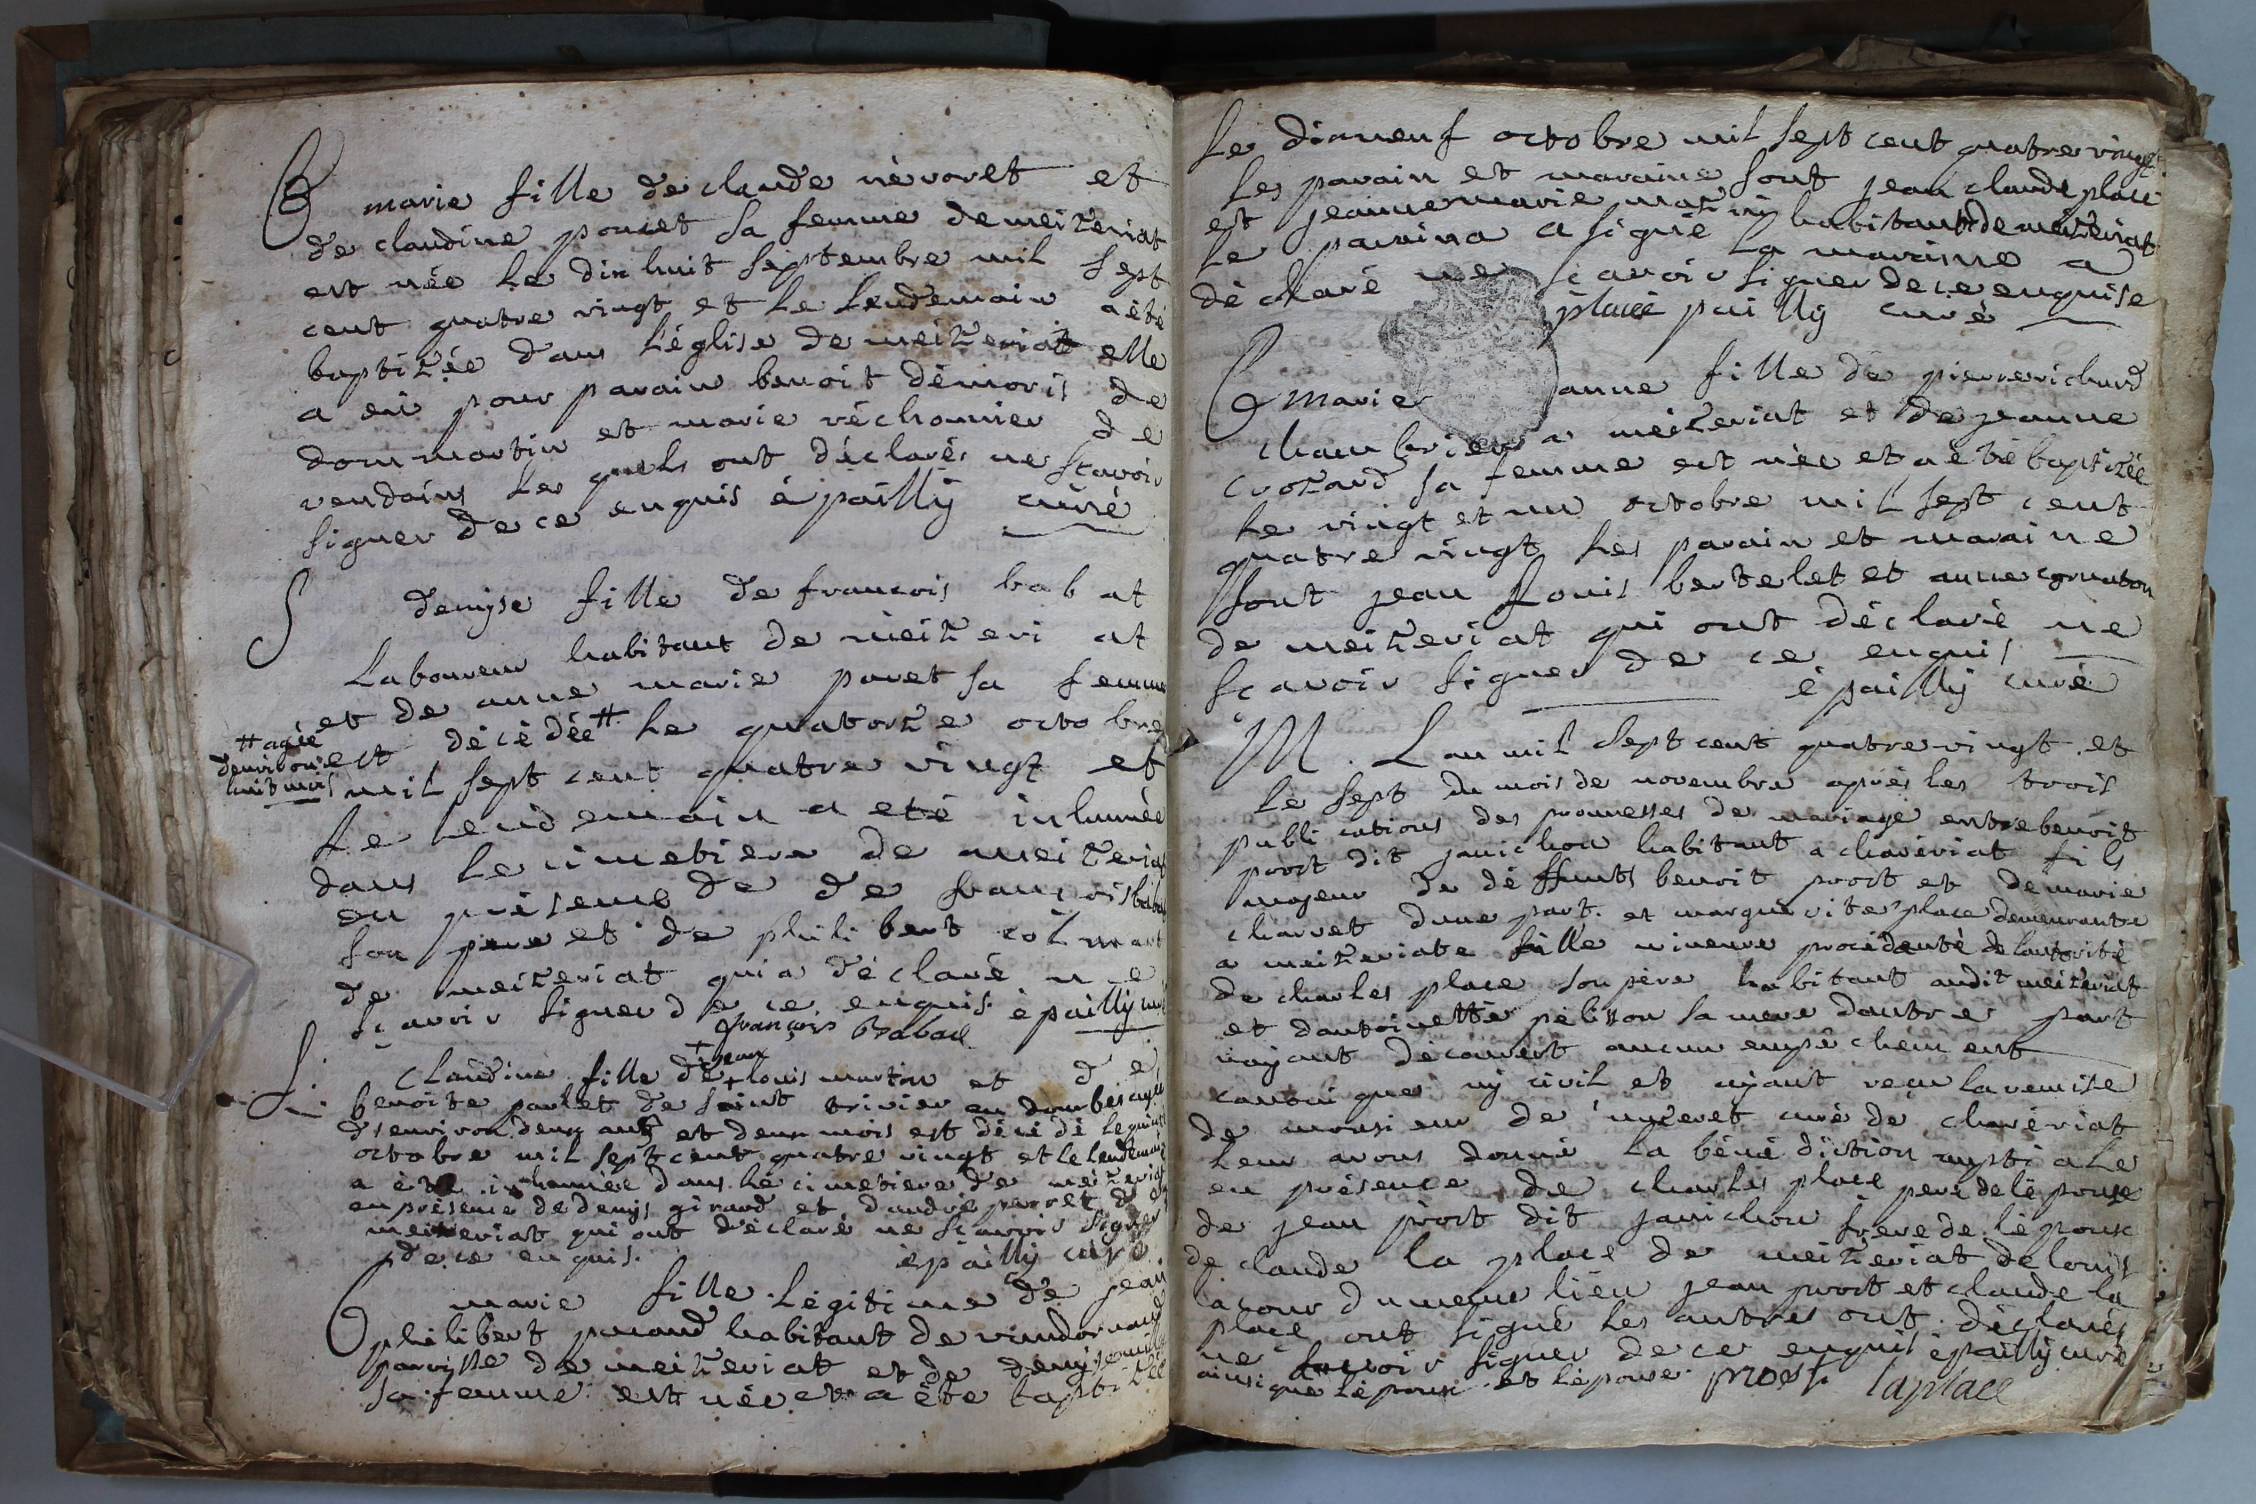 B marie fille de claude nèvoret et
de claudine poncet sa femme de meizeriat
est née le dix huit septembre mil sept
cent quatre vingt et le lendemain a été
baptizée dans l'église de meizeriat elle
a eü pour parain benoit démoris de
dommartin et marie réchonnier de
vendains les quels ont déclarés ne scavoir
signer de ce enquis épailly curé
S denyse fille de francois babat
laboureur habitant de meizeriat
et de anne marie poret sa femme
est décédée # le quatorze octobre
# agée
denviron
huit mois
mil sept cent quatre vingt et
le lendemain a eté inhumée
dans le cimetiere de meizeriat
en présence de de francois babat
son pere et de philibert colmart
de meizeriat qui a déclaré ne
scavoir signer de ce enquis. épailly curé
françois Babad
S. Claudine fille de + louis martin et de
+ jean
benoite parlet de saint trivier en dombes agée
denviron deux ans et deux mois est décédé le quinze
octobre mil sept cent quatre vingt et le lendemain
a été inhumée dans le cimetiere de meizeriat
en présence de denys girard et dandré perret de
meizeriat qui ont déclaré ne scavoir signer
de ce enquis. épailly curé
B marie fille légitime de jean
philibert puand habitant de vindornand
parroisse de meizeriat et de denyse
sa femme est née et a été baptizée
le dixneuf octobre mil sept cent quatre vingt
les parain et maraine sont jean claude place
est jeanne marie habitants de meizeriat
le parain a signé la maraine a
déclaré ne scavoir signer de ce enquise
place pailly curé
B marie anne fille de pierre richard
chambrier a meizeriat et de jeanne
crozard sa femme est née et a été baptizée
le vingt et un octobre mil sept cent
quatre vingt les parain et maraine
sont jean louis bertelet et anne
de meizeriat qui ont déclaré ne
scavoir signer de ce enquis
épailly curé
M. Lan mil sept cent quatre vingt et
le sept du mois de novembre après les trois
publications des promesses de mariage entre benoit
prost dit janichon habitant a chavériat fils
majeur de déffunts benoit prost et de marie
charvet dune part. et marguerite place demeurante
a meizeriate fille mineure procédente de lautorité
de charles place son père habitant audit meizeriat
et dantoinette pelisson sa mere dautre part
nayant découvert aucun empêchement
canonique ny civil et ayant recu la remise
de monsieur de curé de chavériat
leur avons donné la bénédiction nuptiale
en présence de charles place pere de lépouse
de jean prost dit janichon frere de lépoux
de claude la place de meizeriat de louis
lacour du meme lieu jean prost et claude la
place ont signé les autres ont déclarés
ne scavoir signer de ce enquis épailly curé
ainsi que lépoux et lépouse prost laplace